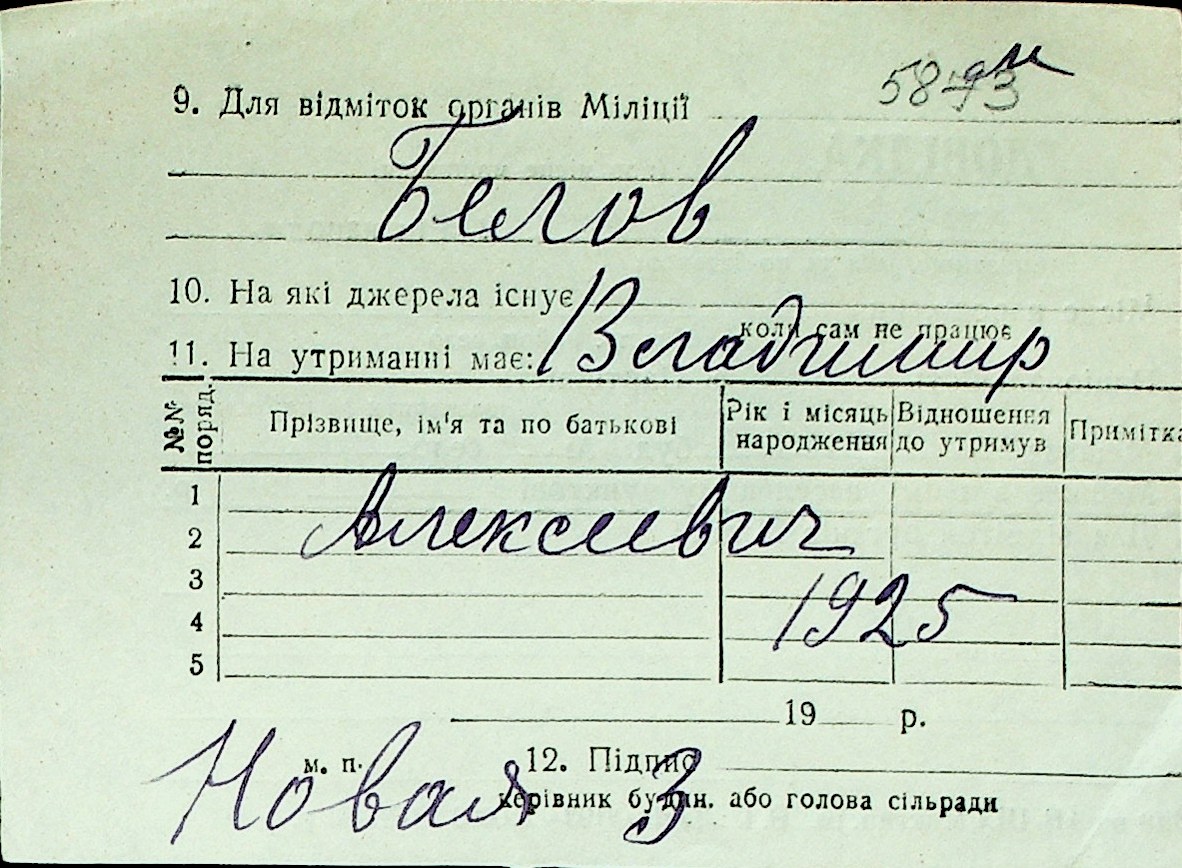 58-93
9. Для відміток органів Міліції
Белов
10. На які джерела існує
коли сам не працює
11. На утриманні має:
Владимир
№№ поряд.
Прізвище, ім'я та по батькові
Рік і місяць народження
Відношення до утримув
Примітка
1
Алексеевич
2
3
1925
4
5
19 р.
м. п.
12. Підпис
Новая 3
керівник будин. або голова сільради